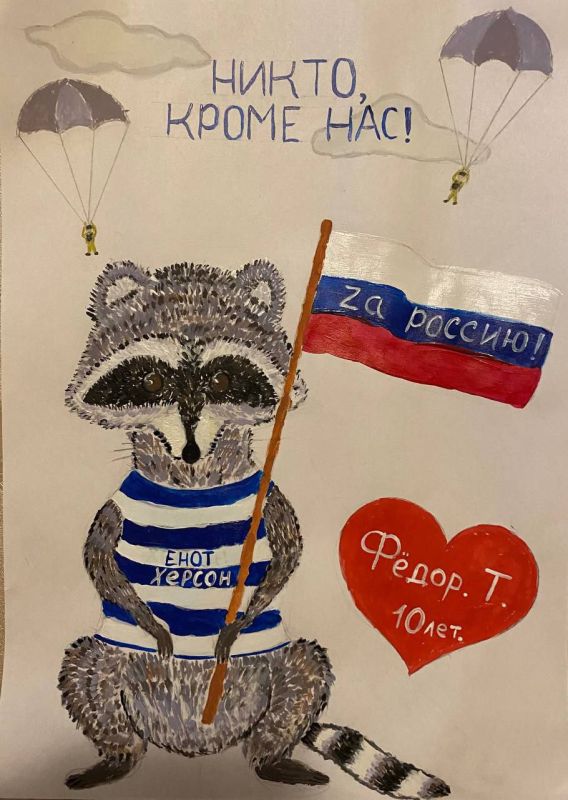 НИКТО,
КРОМЕ НАС!
Zа россию!
ЕНОТ
ХЕРСОН
Фёдор. Т.
10 лет.